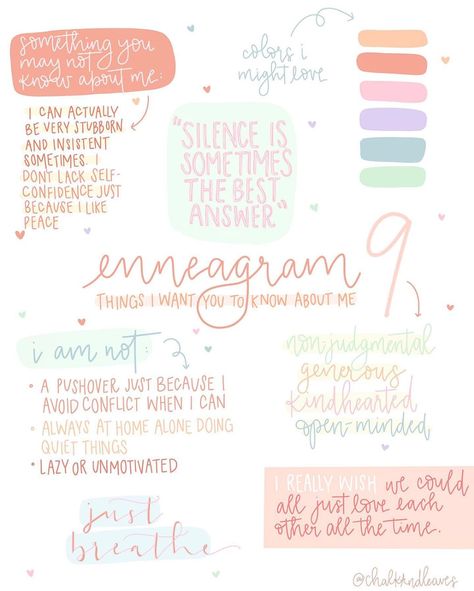 something you
may not
know about me:
I CAN ACTUALLY
BE VERY STUBBORN
AND INSISTENT
SOMETIMES. I
DON'T LACK SELF-
CONFIDENCE JUST
BECAUSE I LIKE
PEACE
colors i
might love
"SILENCE IS
SOMETIMES
THE BEST
ANSWER"
enneagram 9
THINGS I WANT YOU TO KNOW ABOUT ME
i am not:
• A PUSHOVER JUST BECAUSE I
AVOID CONFLICT WHEN I CAN
• ALWAYS AT HOME ALONE DOING
QUIET THINGS
• LAZY OR UNMOTIVATED
nonjudgmental
generous
kindhearted
open-minded
just
breathe
I REALLY WISH we could
all just love each
other all the time.
@chalkandleaves